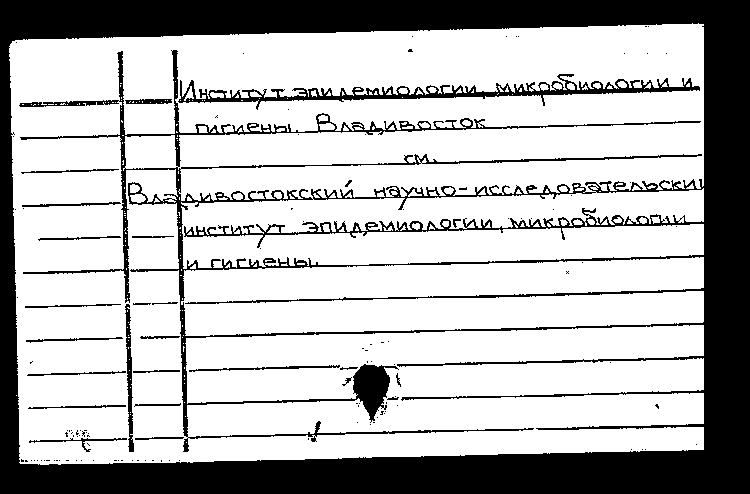 Институт эпидемиологии, микробиологии и
гигиены. Владивосток
см.
Владивостокский научно-исследовательский
институт эпидемиологии, микробиологии
и гигиены.